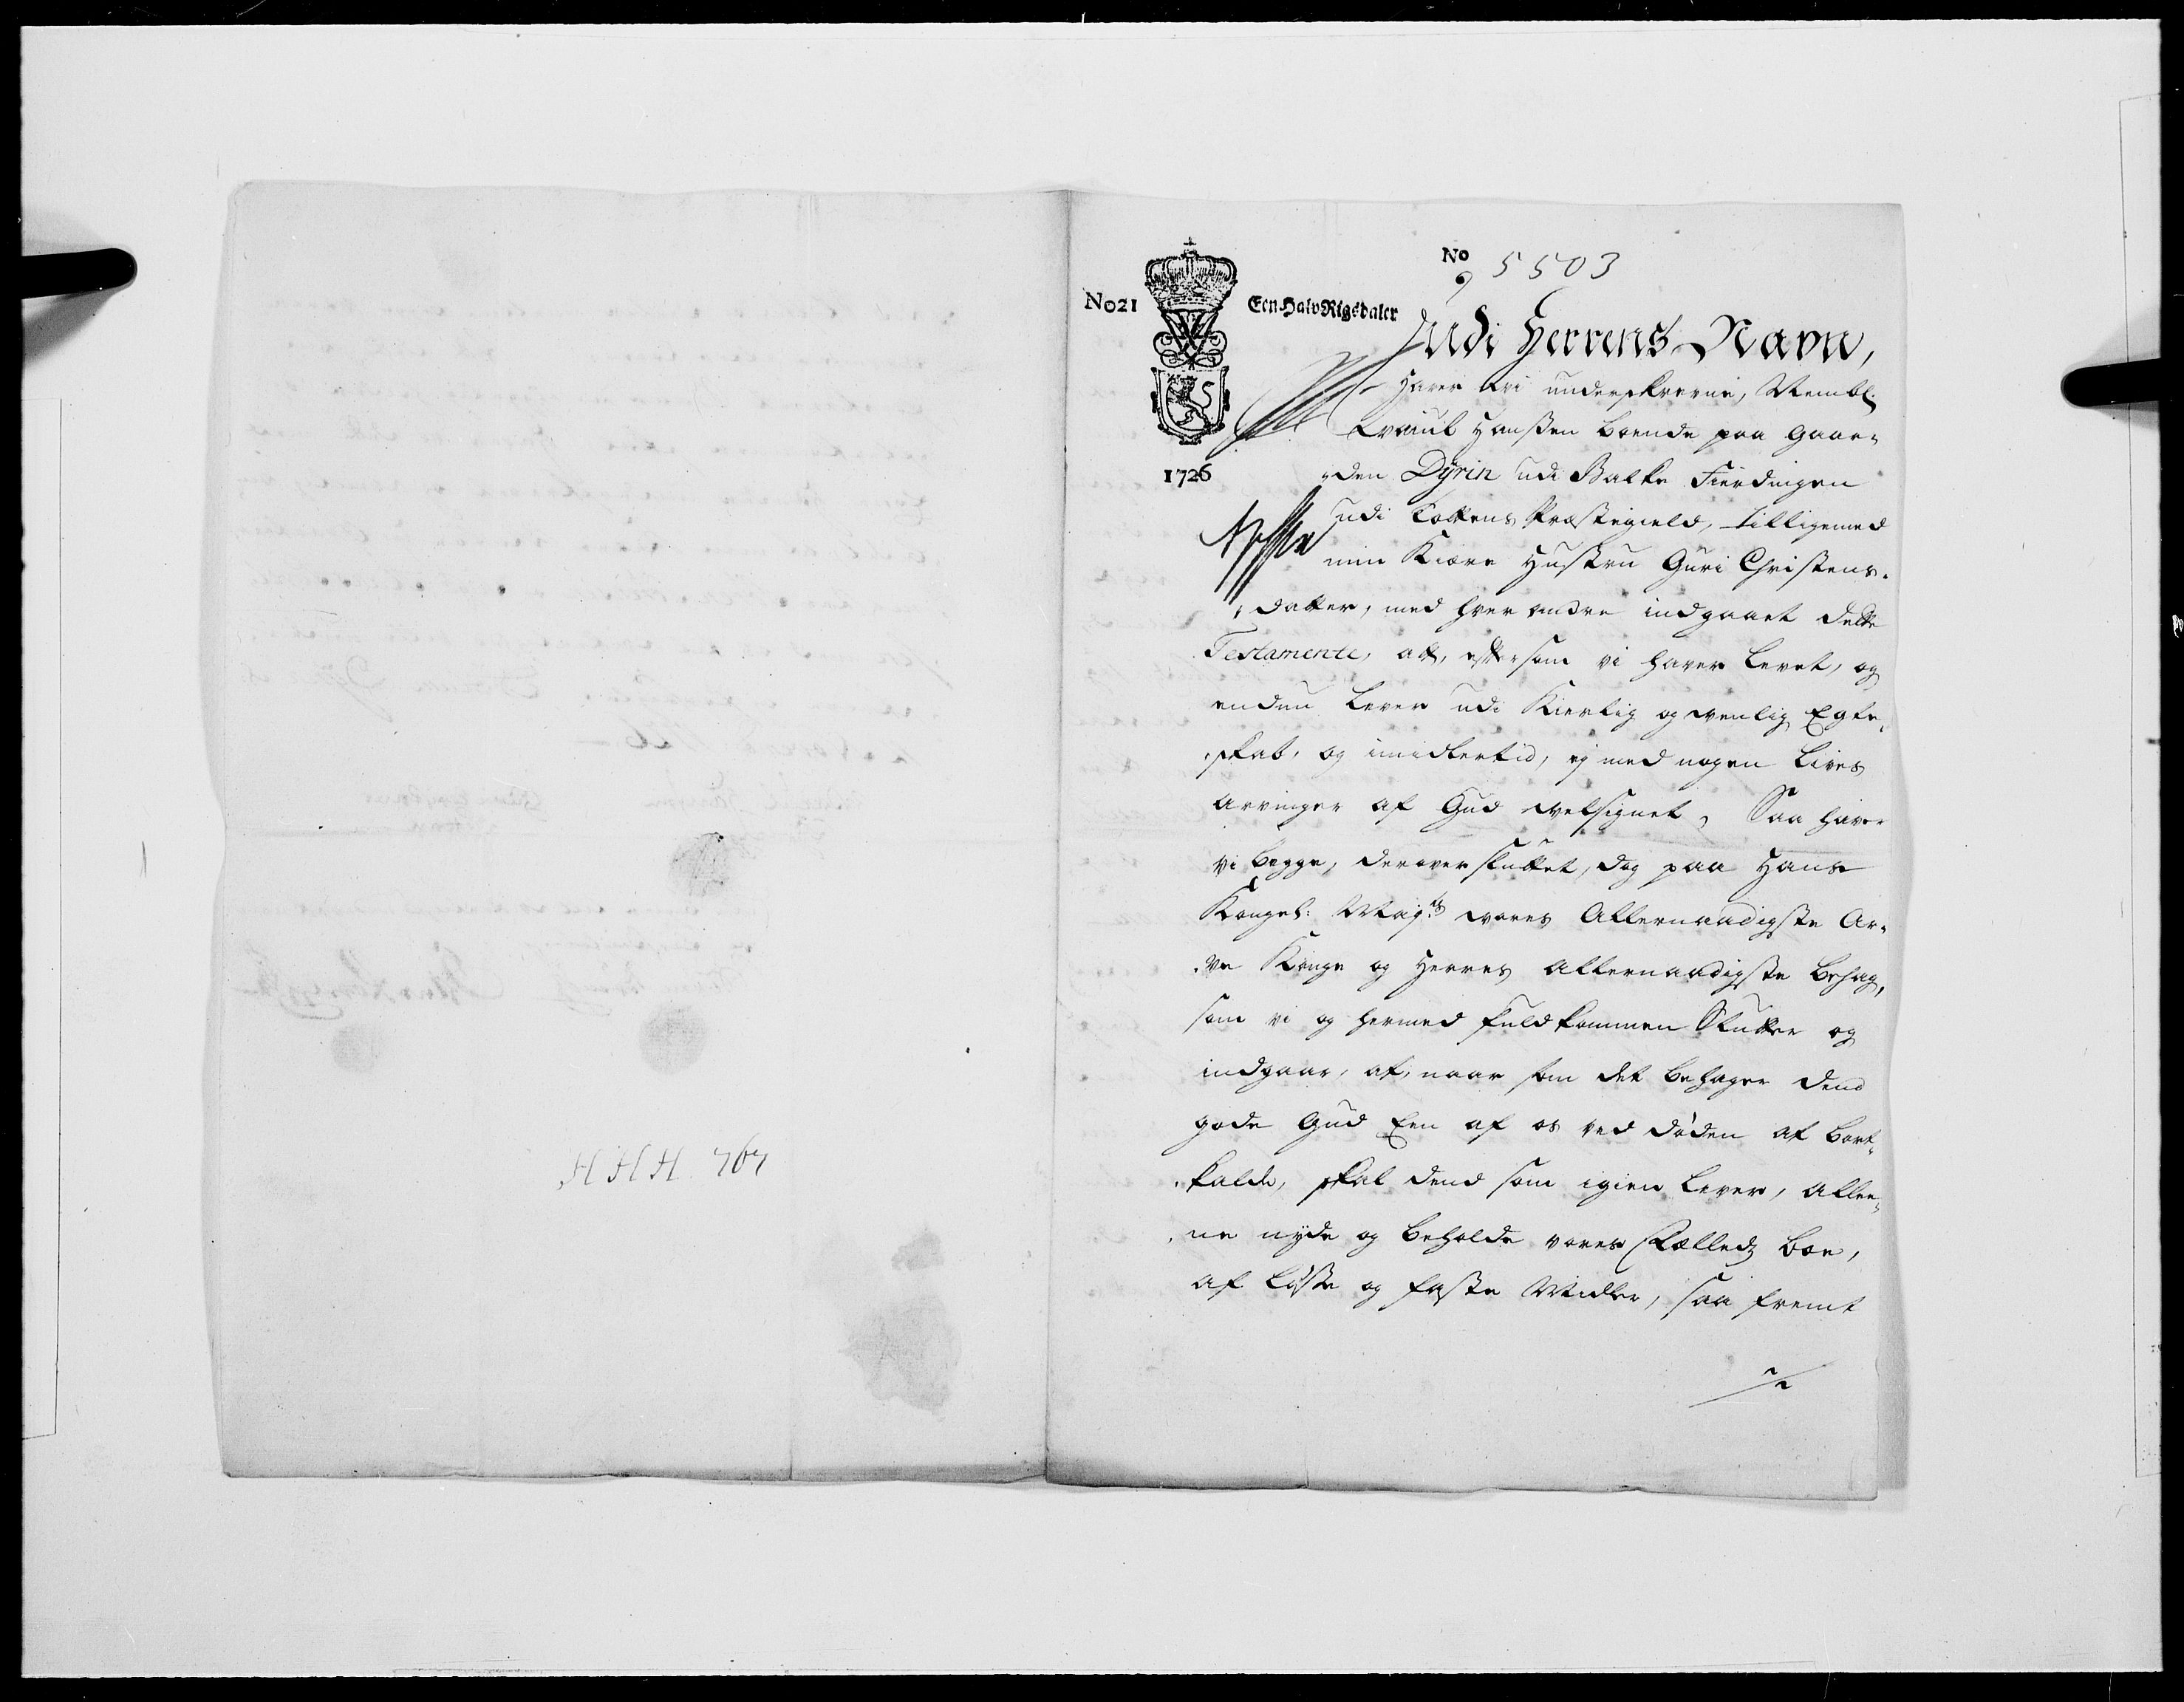 No
9 5503
No21
Een-Halv Rigsdaler
1726
Udi Herrens Navn,
Haver vi underskrevne, Nembl:
Hanßen boende paa Gaar-
den Dyrin udi Balke Fierdingen
udi Tottens Præstegield, tilligemed
min Kiære Hustru Guri Christens-
datter, med hver andre indgaaet dette
Testamente, att, eftersom vi haver levet, og
endnu lever udi Kierlig og venlig Egte-
skab, og imidlertid, ej med nogen Lives
arvinger af Gud velsignet, Saa haver
vi begge, derover sluttet, dog paa Hans
Kongel: Maj:ts vores Allernaadigste Ar-
ve Konge og Herres allernaadigste behag,
som vi og hermed fuldkommen Slutter og
indgaar, at, naar som det behager dend
gode Gud Een af os ved døden at bort-
kalde, skal dend som igien lever, allee-
ne nyde og beholde vores Fælleds boe,
af løße og faste Midler, saa fremt
HHH. 767